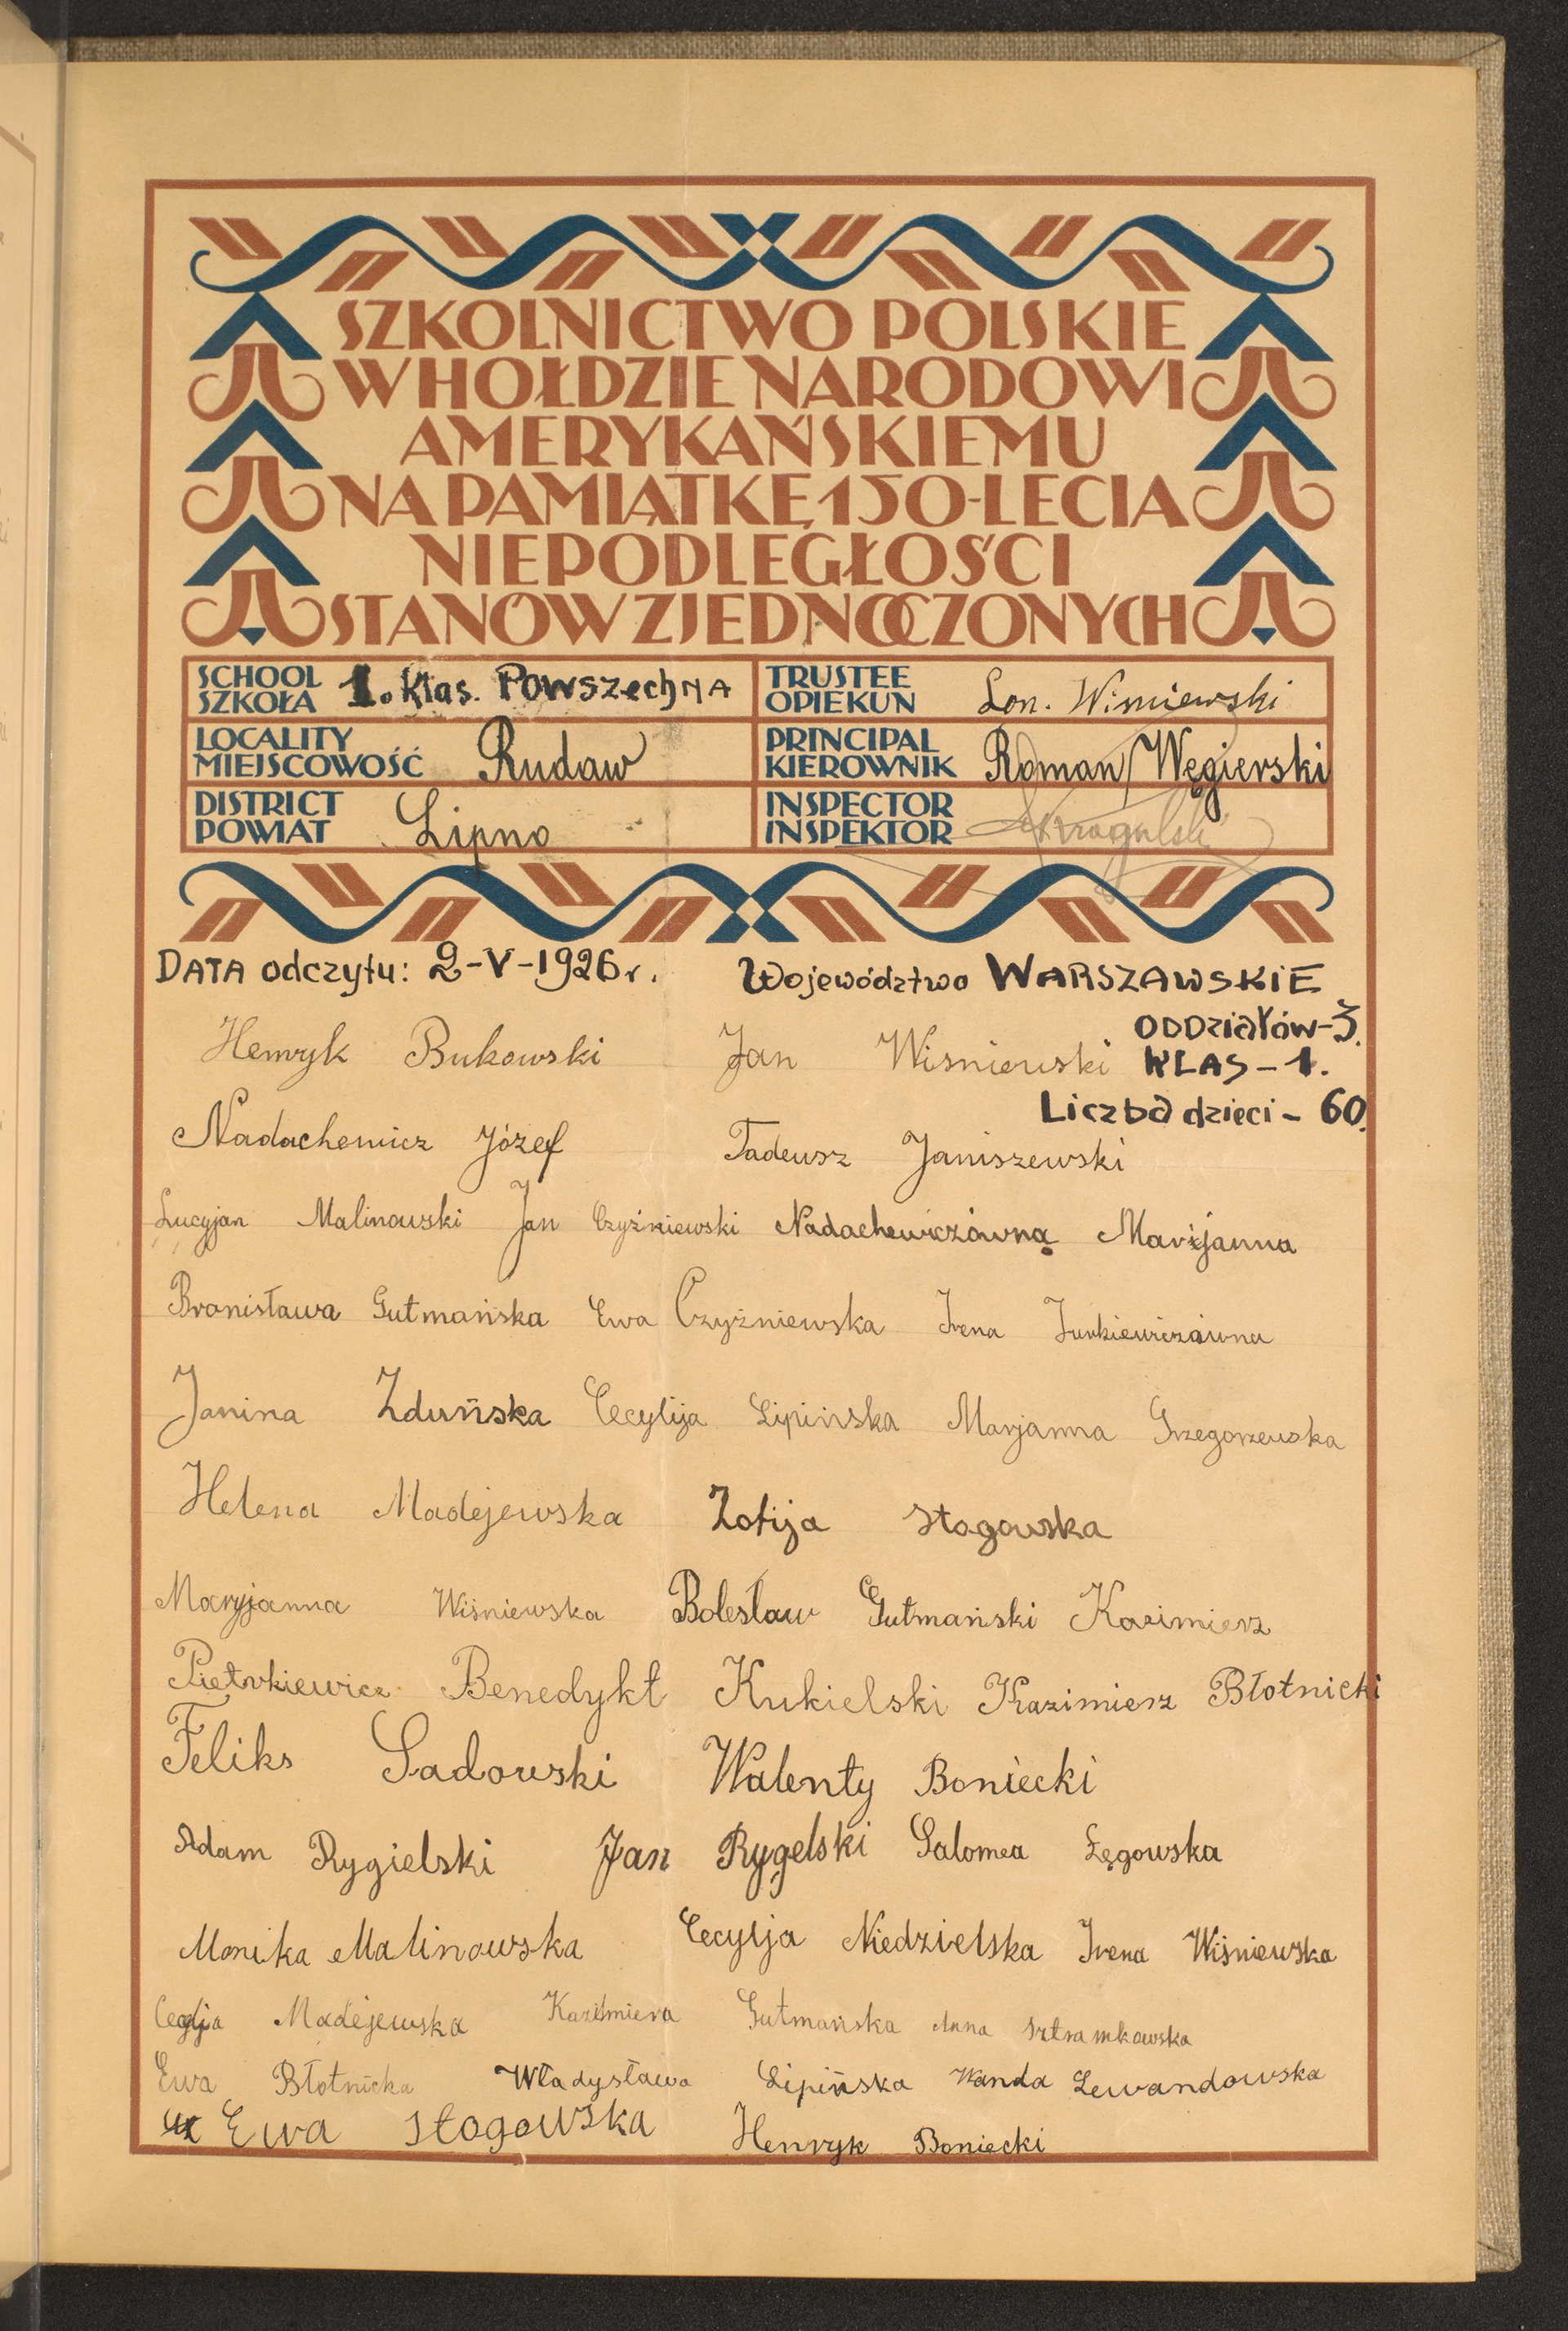 SZKOLNICTWO POLSKIE
W HOŁDZIE NARODOWI
AMERYKAŃSKIEMU
NA PAMIĄTKĘ 150-LECIA
NIEPODLEGŁOŚCI
STANÓW ZJEDNOCZONYCH
SCHOOL
SZKOŁA 1. klas. Powszechna
TRUSTEE
OPIEKUN Lon. Wisniewski
LOCALITY
MIEJSCOWOŚĆ Rudaw
PRINCIPAL
KIEROWNIK Roman Węgierski
DISTRICT
POWIAT Lipno
INSPECTOR
INSPEKTOR
DATA odczytu: 2-V-1926 r. Województwo WARSZAWSKIE
ODDziałów-3.
Henryk Bukowski Jan Wisniewski KLAS-1.
Liczba dzieci- 60.
Nadachewicz Józef Tadeusz Janiszewski
Lucyjan Malinowski Jan Czyżniewski Nadachewiczówna Marijanna
Bronisława Gutmańska Ewa Czyżniewska Irena Jurkiewiczówna
Janina Zduńska Cecylija Lipińska Marjanna Grzegorzewska
Helena Madejewska Zofija Stogowska
Maryjanna Wiśniewska Bolesław Gutmański Kazimierz
Pietrkiewicz Benedykt Kukielski Kazimierz Błotnicki
Feliks Sadowski Walenty Boniecki
Adam Rygielski Jan Rygelski Salomea Łęgowska
Monika Malinowska Cecylja Niedzielska Irena Wiśniewska
Madejewska Kazimiera Gutmańska Anna Sztramkowska
Ewa Błotnicka Władysława Lipińska Wanda Lewandowska
Ewa Stogowska Henryk Boniecki